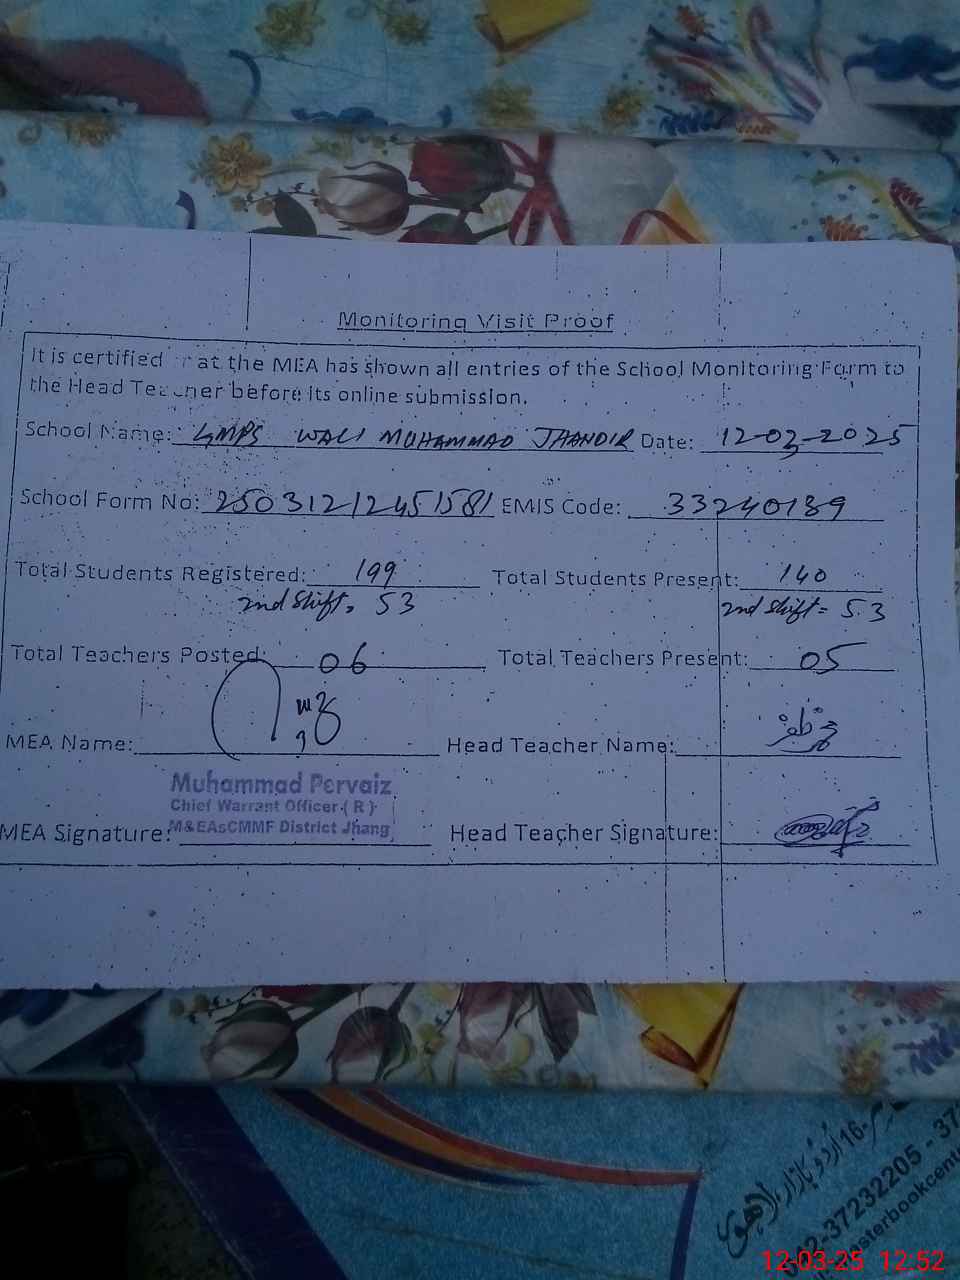 Monitoring Visit Proof
It is certified at the MEA has shown all entries of the School Monitoring Form to
the Head Teacher before its online submission.
School Name: GMPS WALI MUHAMMAD JHANDIR Date: 12-03-2025
School Form No: 25031212451581 EMIS Code: 33240189
Total Students Registered: 199 Total Students Present: 140
2nd Shift = 53 2nd Shift = 53
Total Teachers Posted: 06 Total Teachers Present: 05
MEA Name: Head Teacher Name:
Muhammad Pervaiz
Chief Warrant Officer (R)
M&EAsCMMF District Jhang
MEA Signature: Head Teacher Signature:
16-اردو بازار، لاہور
042-37232205 - 37
osterbookcent
12-03-25 12:52